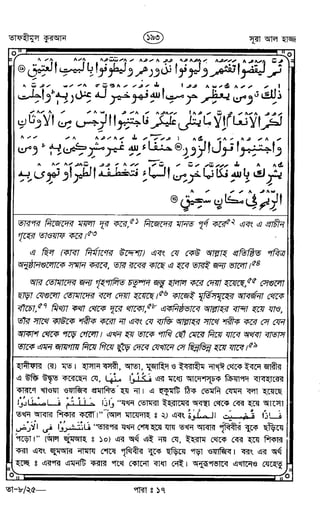 তাফহীমুল কুরআন ১৯৩ সূরা আল হাজ্জ
ثُمَّ لْيَقْضُوا تَفَثَهُمْ وَلْيُوفُوا نُذُورَهُمْ وَلْيَطَّوَّفُوا بِالْبَيْتِ الْعَتِيقِ
ذَٰلِكَ وَمَنْ يُعَظِّمْ حُرُمَٰتِ اللَّهِ فَهُوَ خَيْرٌ لَهُ عِنْدَ رَبِّهِ وَأُحِلَّتْ
لَكُمُ الْأَنْعَامُ إِلَّا مَا يُتْلَىٰ عَلَيْكُمْ فَاجْتَنِبُوا الرِّجْسَ مِنَ الْأَوْثَانِ
وَاجْتَنِبُوا قَوْلَ الزُّورِ حُنَفَاءَ لِلَّهِ غَيْرَ مُشْرِكِينَ بِهِ وَمَنْ
يُشْرِكْ بِاللَّهِ فَكَأَنَّمَا خَرَّ مِنَ السَّمَاءِ فَتَخْطَفُهُ الطَّيْرُ أَوْ تَهْوِي بِهِ
الرِّيحُ فِي مَكَانٍ سَحِيقٍ
তারপর নিজেদের ময়লা দূর করে, নিজেদের মানত পূর্ণ করে এবং এ প্রাচীন
গৃহের তাওয়াফ করে।
এ ছিল (কাবা নির্মাণের উদ্দেশ্য) এবং যে কেউ আল্লাহ প্রতিষ্ঠিত পবিত্র
অনুষ্ঠানগুলোকে সম্মান করবে, তার রবের কাছে এ হবে তারই জন্য ভালো।
আর তোমাদের জন্য গৃহপালিত চতুষ্পদ জন্তু হালাল করে দেয়া হয়েছে, সেগুলো
ছাড়া যেগুলো তোমাদের বলে দেয়া হয়েছে। কাজেই মূর্তিসমূহের আবর্জনা থেকে
বাঁচো, মিথ্যা কথা থেকে দূরে থাকো, একনিষ্ঠভাবে আল্লাহর বান্দা হয়ে যাও,
তাঁর সাথে কাউকে শরীক করো না এবং যে ব্যক্তি আল্লাহর সাথে শরীক করে সে যেন
আকাশ থেকে পড়ে গেলো। এখন হয় তাকে পাখি ছোঁ মেরে নিয়ে যাবে অথবা বাতাস
তাকে এমন জায়গায় নিয়ে গিয়ে ছুঁড়ে দেবে যেখানে সে ছিন্নভিন্ন হয়ে যাবে।
হানীফার (র) মত। হাসান বসরী, আতা, মুজাহিদ ও ইবরাহীম নাখঈ থেকে
এ উক্তি উদ্ধৃত করেছেন যে, এর মধ্যে আদেশসূচক ক্রিয়াপদ ব্যবহারের
কারণে খাওয়া ওয়াজিব প্রমাণিত হয় না। এ হুকুমটি ঠিক তেমনি যেমন বলা হয়েছে
وَإِذَا حَلَلْتُمْ فَاصْطَادُوا "যখন তোমরা ইহরামের অবস্থা থেকে বের হয়ে আসো
তখন আবার শিকার করো।" (আল মায়েদাহ : ২) এবং فَإِذَا قُضِيَتِ الصَّلَوٰةُ
فَانْتَشِرُوا فِي الْأَرْضِ "তারপর যখন শেষ হয়ে যায় তখন আবার পৃথিবীর বুকে ছড়িয়ে
পড়ো।" (আল জুমআহ : ১০) এর অর্থ এই নয় যে, ইহরাম থেকে বের হয়ে শিকার
করা এবং জুমআর নামায শেষে পৃথিবীর বুকে ছড়িয়ে পড়া ওয়াজিব। বরং এর অর্থ
হচ্ছে : এরপর এমনটি করার পথে কোনো বাধা নেই। অনুরূপভাবে এখানেও যেহেতু
তা-৮/২৫— পারা : ১৭